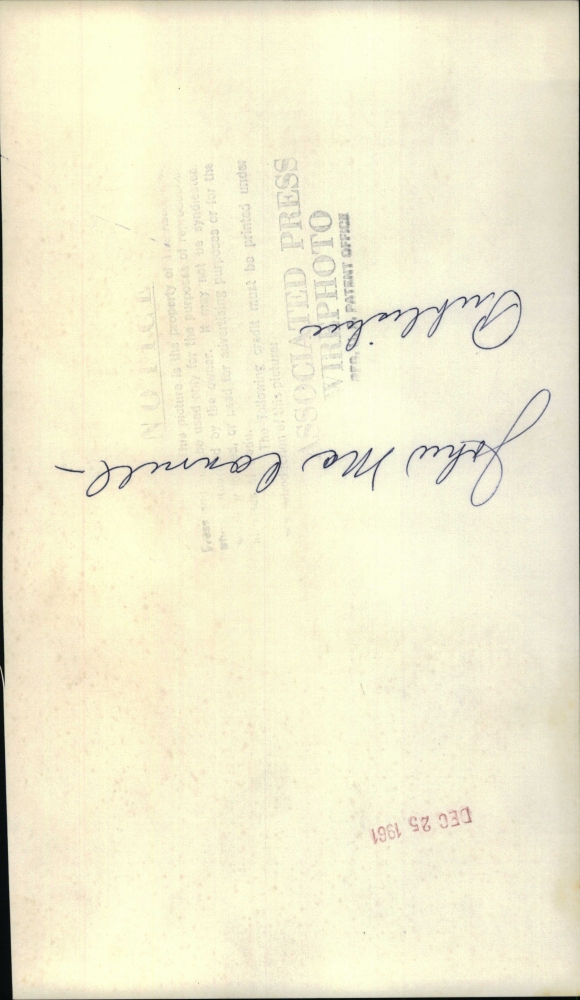 John Mc Connell –
Publisher
DEC 25 1961
NOTICE
picture is the property of
Press used only for the purposes of
by the owner. It may not be syndicated
or used for advertising purposes or for the
The following credit must be printed under
of this picture:
ASSOCIATED PRESS
WIREPHOTO
REG. U. S. PATENT OFFICE